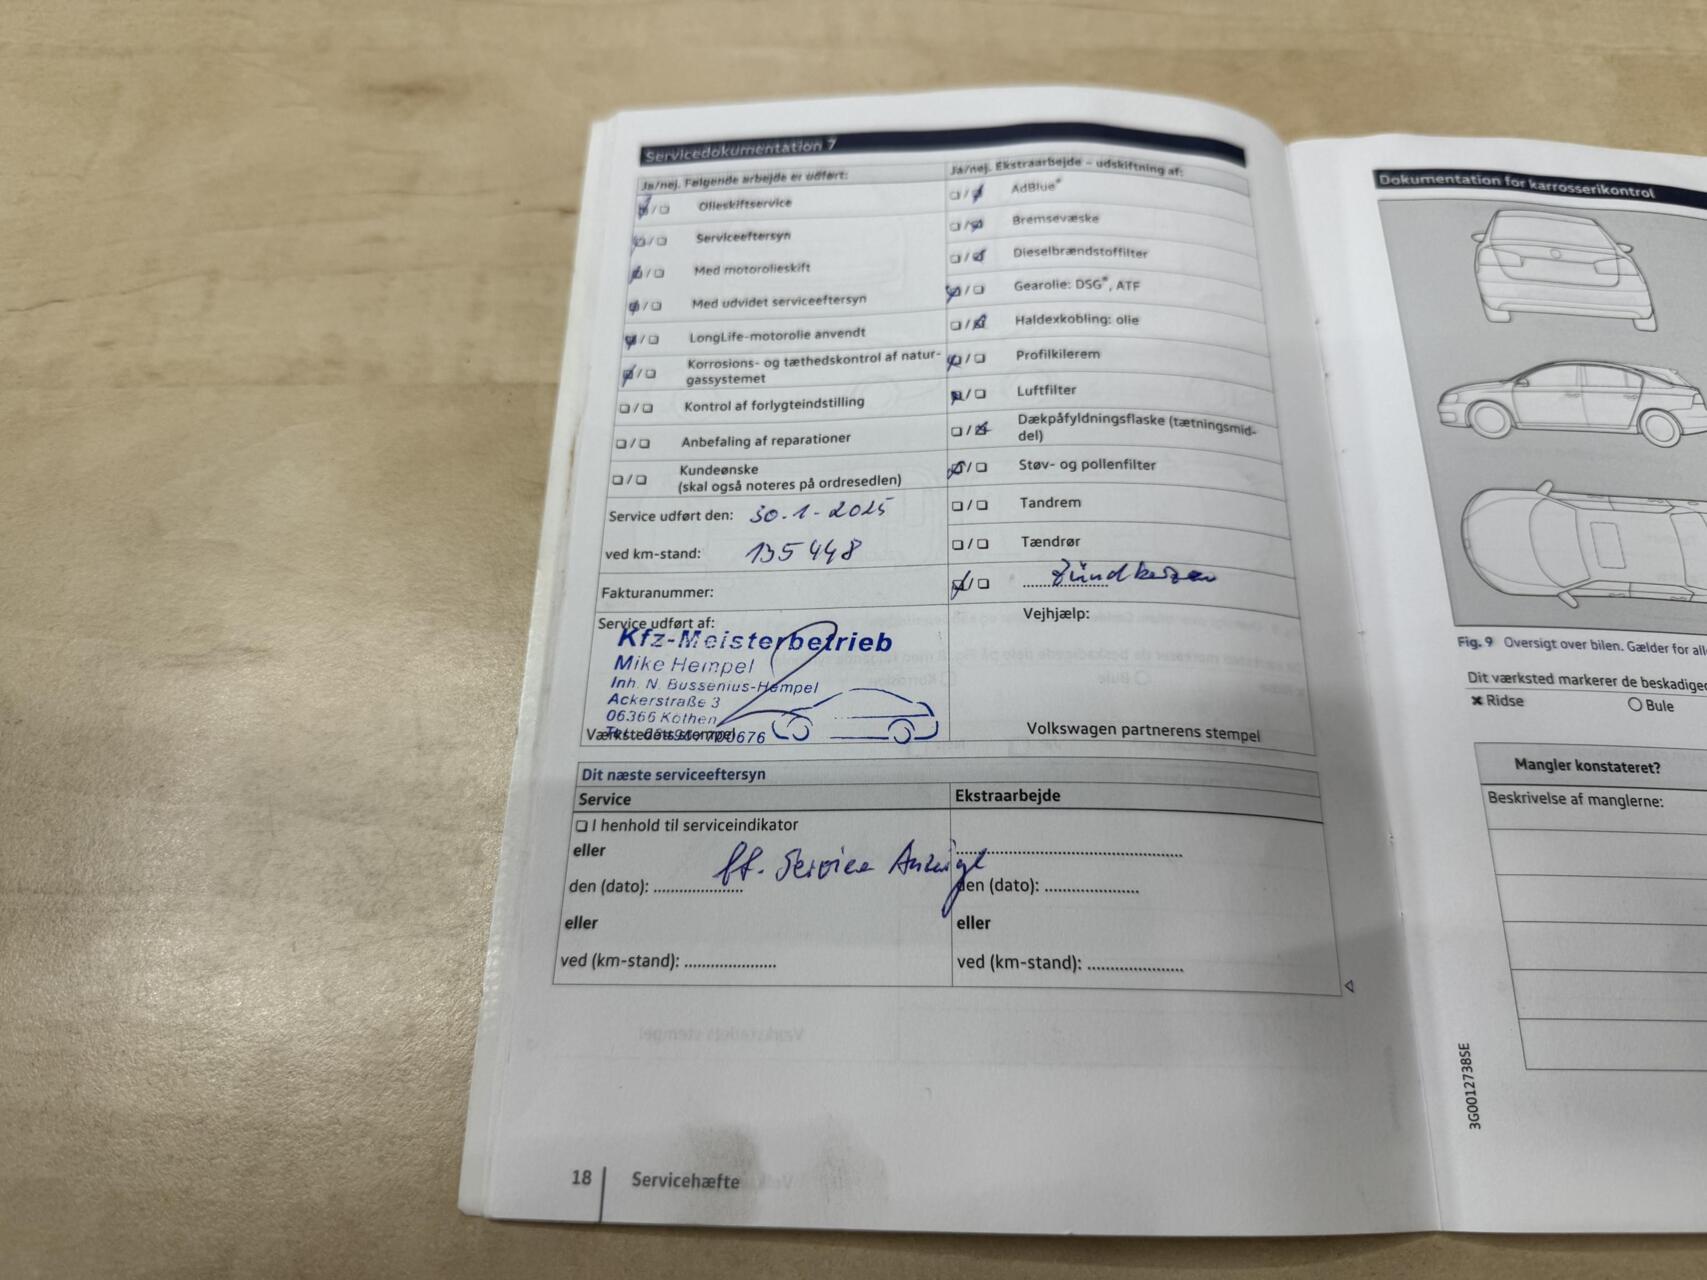 Servicedokumentation 7
Ja/nej. Følgende arbejde er udført:
Olieskiftservice
Serviceeftersyn
Med motorolieskift
Med udvidet serviceeftersyn
LongLife-motorolie anvendt
Korrosions- og tæthedskontrol af natur-
gassystemet
Kontrol af forlygteindstilling
Anbefaling af reparationer
Kundeønske
(skal også noteres på ordresedlen)
Service udført den: 30.1-2025
ved km-stand: 135 448
Fakturanummer:
Service udført af:
Kfz-Meisterbetrieb
Mike Hempel
Inh. N. Bussenius-Hempel
Ackerstraße 3
06366 Köthen
Værkstedets stempel
Ja/nej. Ekstraarbejde – udskiftning af:
AdBlue®
Bremsevæske
Dieselbrændstoffilter
Gearolie: DSG®, ATF
Haldexkobling: olie
Profilkilerem
Luftfilter
Dækpåfyldningsflaske (tætningsmid-
del)
Støv- og pollenfilter
Tandrem
Tændrør
Zündkerzen
Vejhjælp:
Volkswagen partnerens stempel
Dit næste serviceeftersyn
Service
I henhold til serviceindikator
eller
lt. Service Anzeige
den (dato): ....................
eller
ved (km-stand): ....................
Ekstraarbejde
den (dato): ....................
eller
ved (km-stand): ....................
18
Servicehæfte
Dokumentation for karrosserikontrol
Fig. 9 Oversigt over bilen. Gælder for
Dit værksted markerer de
Ridse
Bule
Mangler konstateret?
Beskrivelse af manglerne:
3G0012738SE